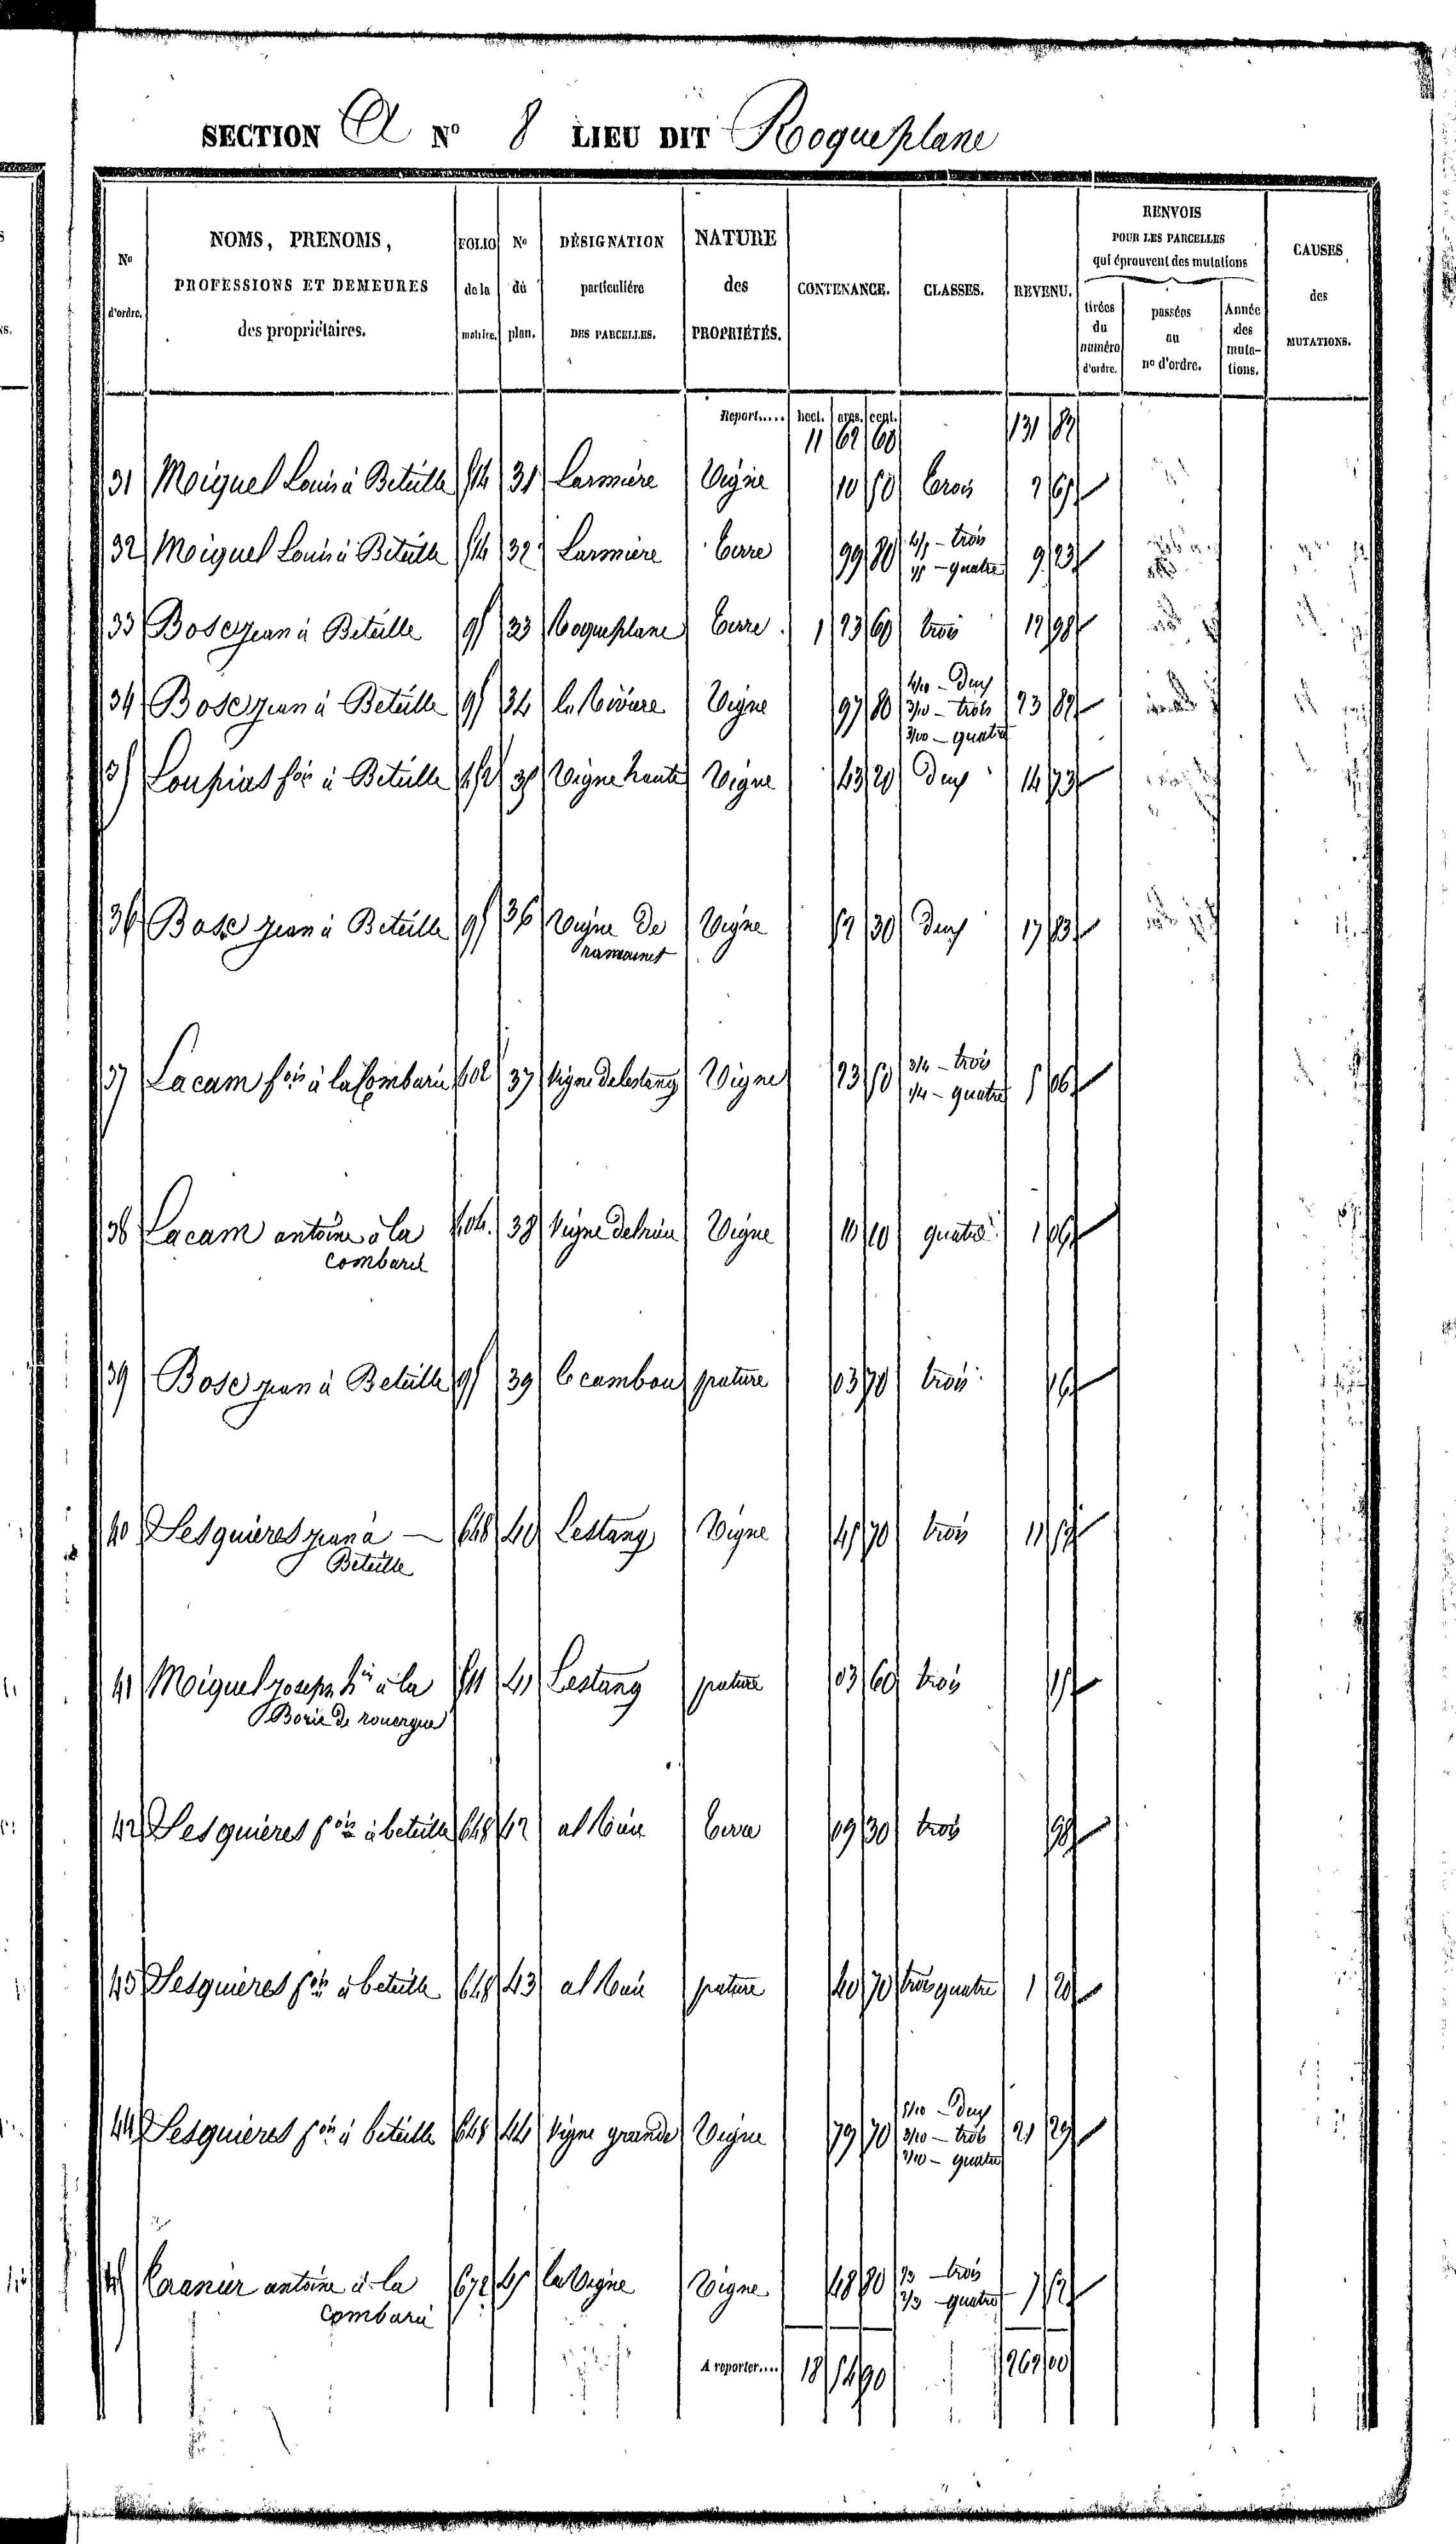 SECTION A Nº 8 LIEU DIT Roqueplane
Nº d'ordre. NOMS, PRENOMS, PROFESSIONS ET DEMEURES des propriétaires. FOLIO de la matrice. Nº du plan. DÉSIGNATION particulière DES PARCELLES. NATURE des PROPRIÉTÉS. CONTENANCE. CLASSES. REVENU. RENVOIS POUR LES PARCELLES qui éprouvent des mutations tirées du numéro d'ordre. passées au nº d'ordre. Année des mutations. CAUSES des MUTATIONS.
Report..... hect. ares. cent.
11 62 60 131 82
31 Moiguel Louis à Beteille 514 31 Larmière Vigne 10 50 trois 2 65
32 Moiguel Louis à Beteille 514 32 Larmière terre 99 80 4/5 - trois
1/5 - quatre 9 23
33 Bosc jean à Beteille 95 33 Roqueplane terre 1 23 60 trois 12 98
34 Bosc jean à Beteille 95 34 la Rivière Vigne 97 80 4/10 - Deux
3/10 - trois 23 82
3/10 - quatre
35 Loupias fois à Beteille 452 35 Vigne haute Vigne 43 20 Deux 14 73
36 Bosc jean à Beteille 95 36 Vigne De Vigne 52 30 deux 17 83
ramounet
37 Lacam fois à la Combarie 402 37 Vigne delestang Vigne 23 50 3/4 - trois
1/4 - quatre 5 06
38 Lacam antoine à la 404. 38 Vigne delrieu Vigne 10 10 quatre 1 06
combarie
39 Bosc jean à Beteille 95 39 le cambou pature 03 70 trois 16
40 Sesquieres jean à — 648 40 Lestang Vigne 45 70 trois 11 52
Beteille
41 Moiguel joseph à la 511 41 Lestang pature 03 60 trois 15
Borie de rouergue
42 Sesquières fois à beteille 648 42 al Rieu terre 09 30 trois 98
43 Sesquières fois à beteille 648 43 al Rieu pature 40 70 trois quatre 1 20
44 Sesquières fois à beteille 648 44 Vigne grande Vigne 79 70 5/10 - Deux
3/10 - trois 21 29
2/10 - quatre
45 antoine à la 672 45 la Vigne Vigne 48 80 1/3 - trois
2/3 - quatre 7 52
combarie
A reporter.... 18 54 90 262 00